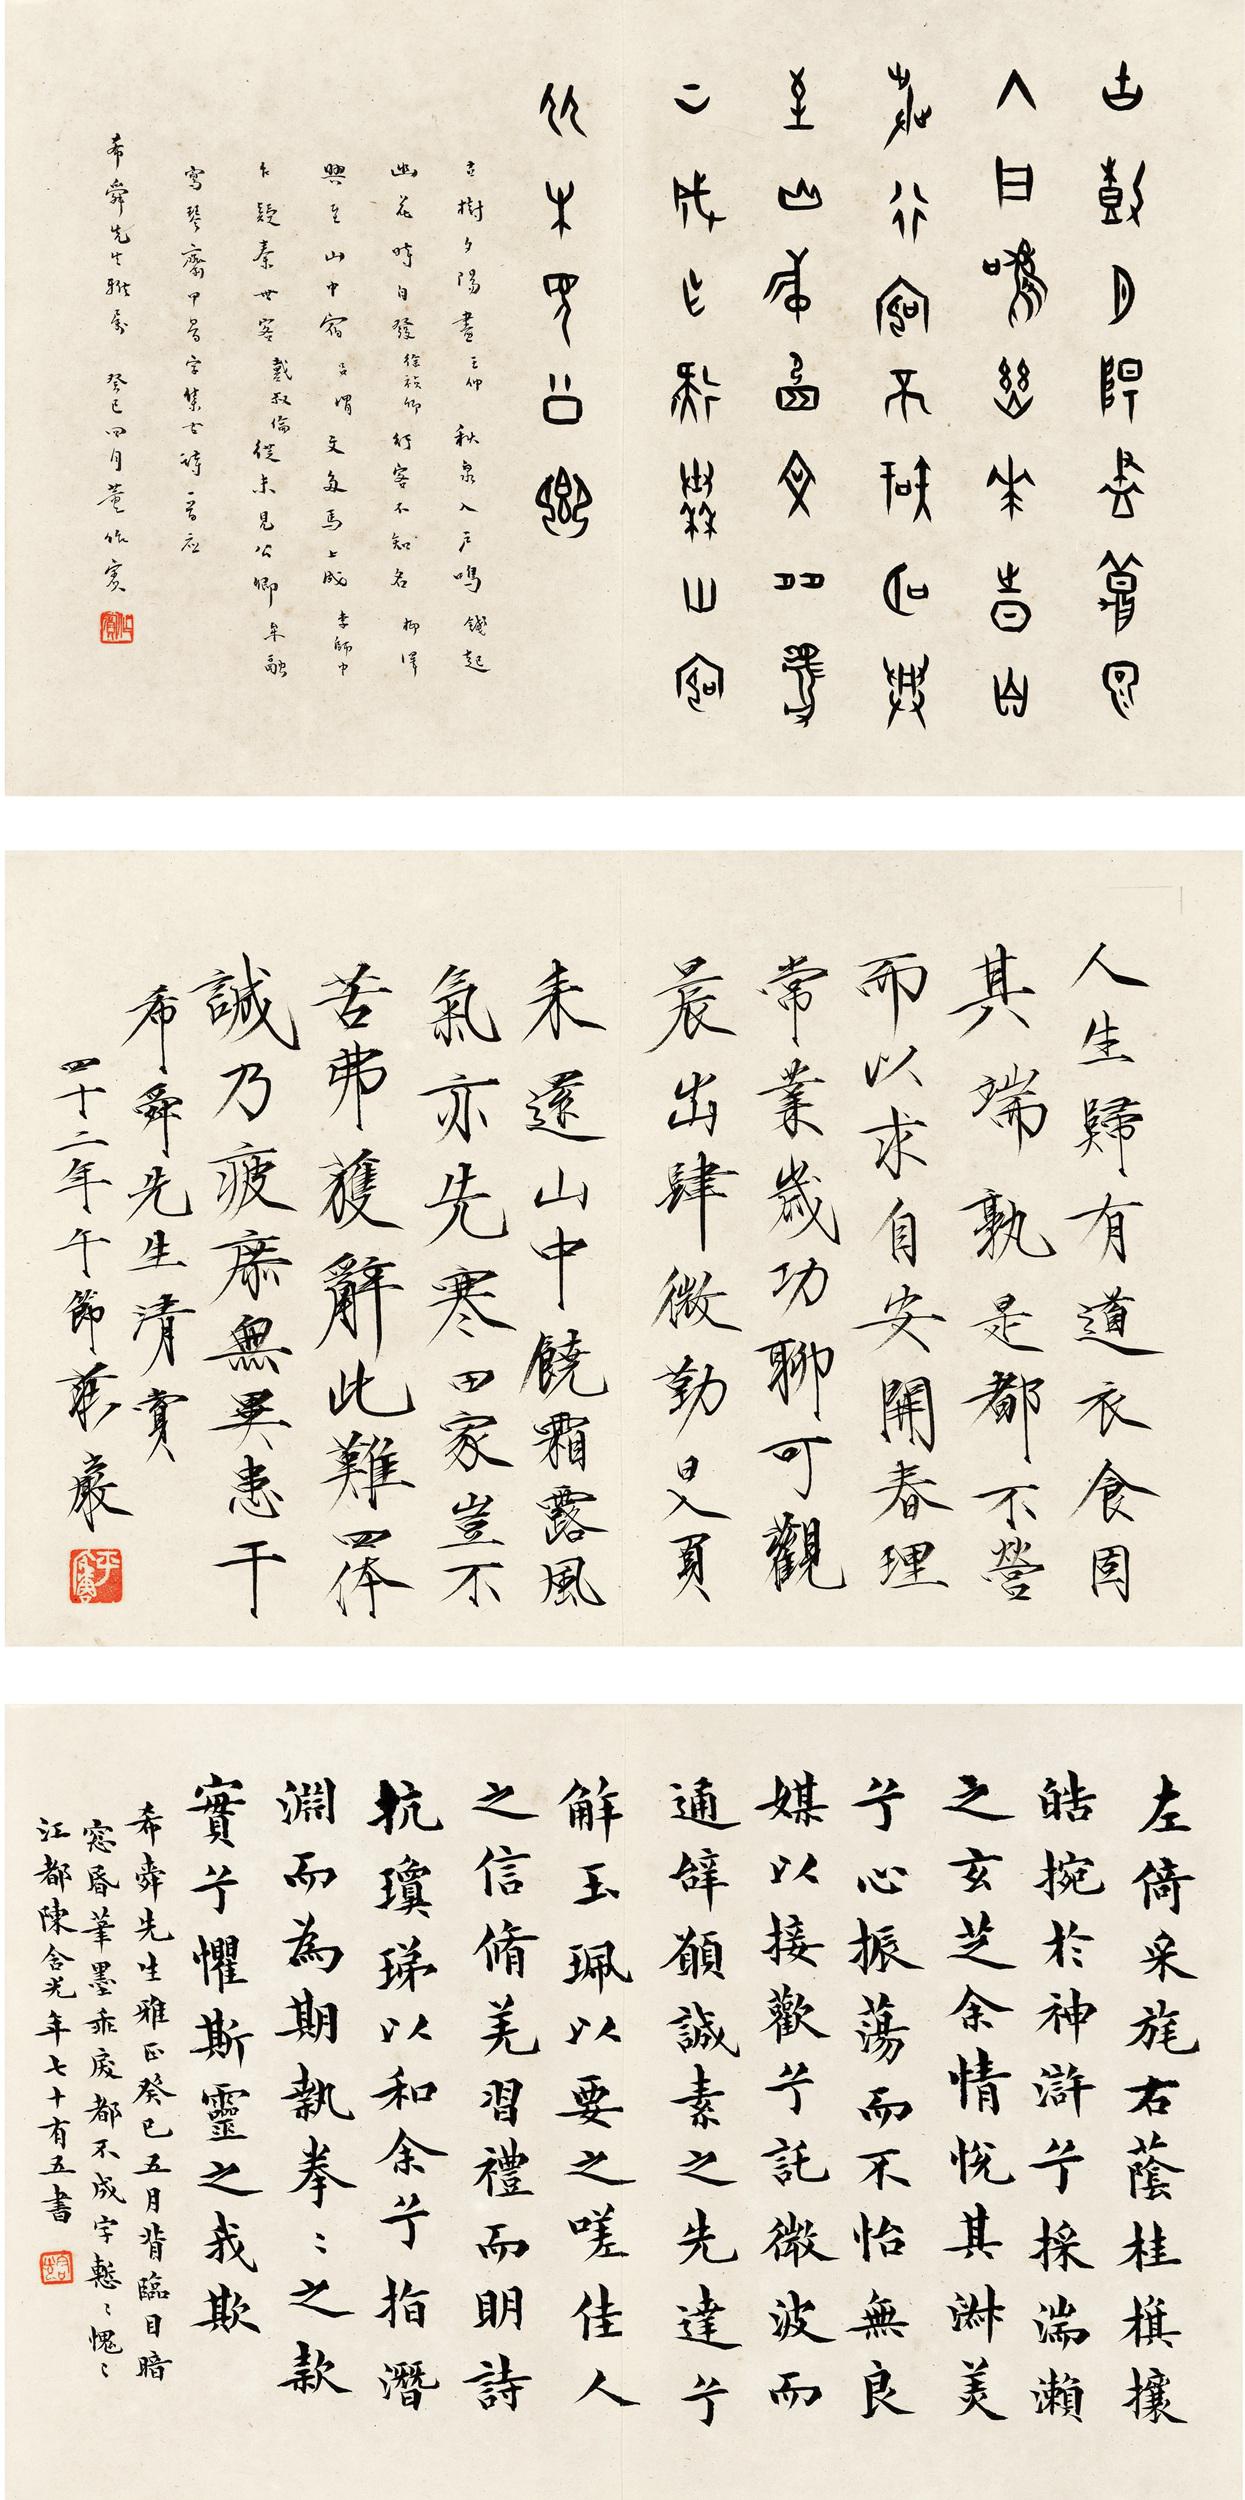 古樹夕陽盡秋泉
入戶鳴幽花時自
發行客不知名興
至山中宿文多馬
上成乍疑秦世客
從未見公卿
古樹夕陽盡 王仲 秋泉入戶鳴 錢起
幽花時自發 徐禎卿 行客不知名 柳渾
興至山中宿 呂渭 文多馬上成 李師中
乍疑秦世客 戴叔倫 從未見公卿 牟融
寫琴齋甲骨字集古詩一首應
希舜先生雅屬 癸巳四月董作賓
人生歸有道衣食固
其端孰是都不營
而以求自安開春理
常業歲功聊可觀
晨出肆微勤日入負
耒還山中饒霜露風
氣亦先寒田家豈不
苦弗獲辭此難四体
誠乃疲庶無異患干
希舜先生清賞
四十二年午節莊嚴
左倚采旄右蔭桂旗攘
皓捥於神滸兮採湍瀨
之玄芝余情悅其淋美
兮心振蕩而不怡無良
媒以接歡兮託微波而
通辭願誠素之先達兮
解玉珮以要之嗟佳人
之信脩羌習禮而明詩
抗瓊珶以和余兮指潛
淵而為期執拳〻之款
實兮懼斯靈之我欺
希舜先生雅正癸巳五月背臨目暗
窓昏筆墨乖戾都不成字慙〻愧〻
江都陳含光年七十有五書